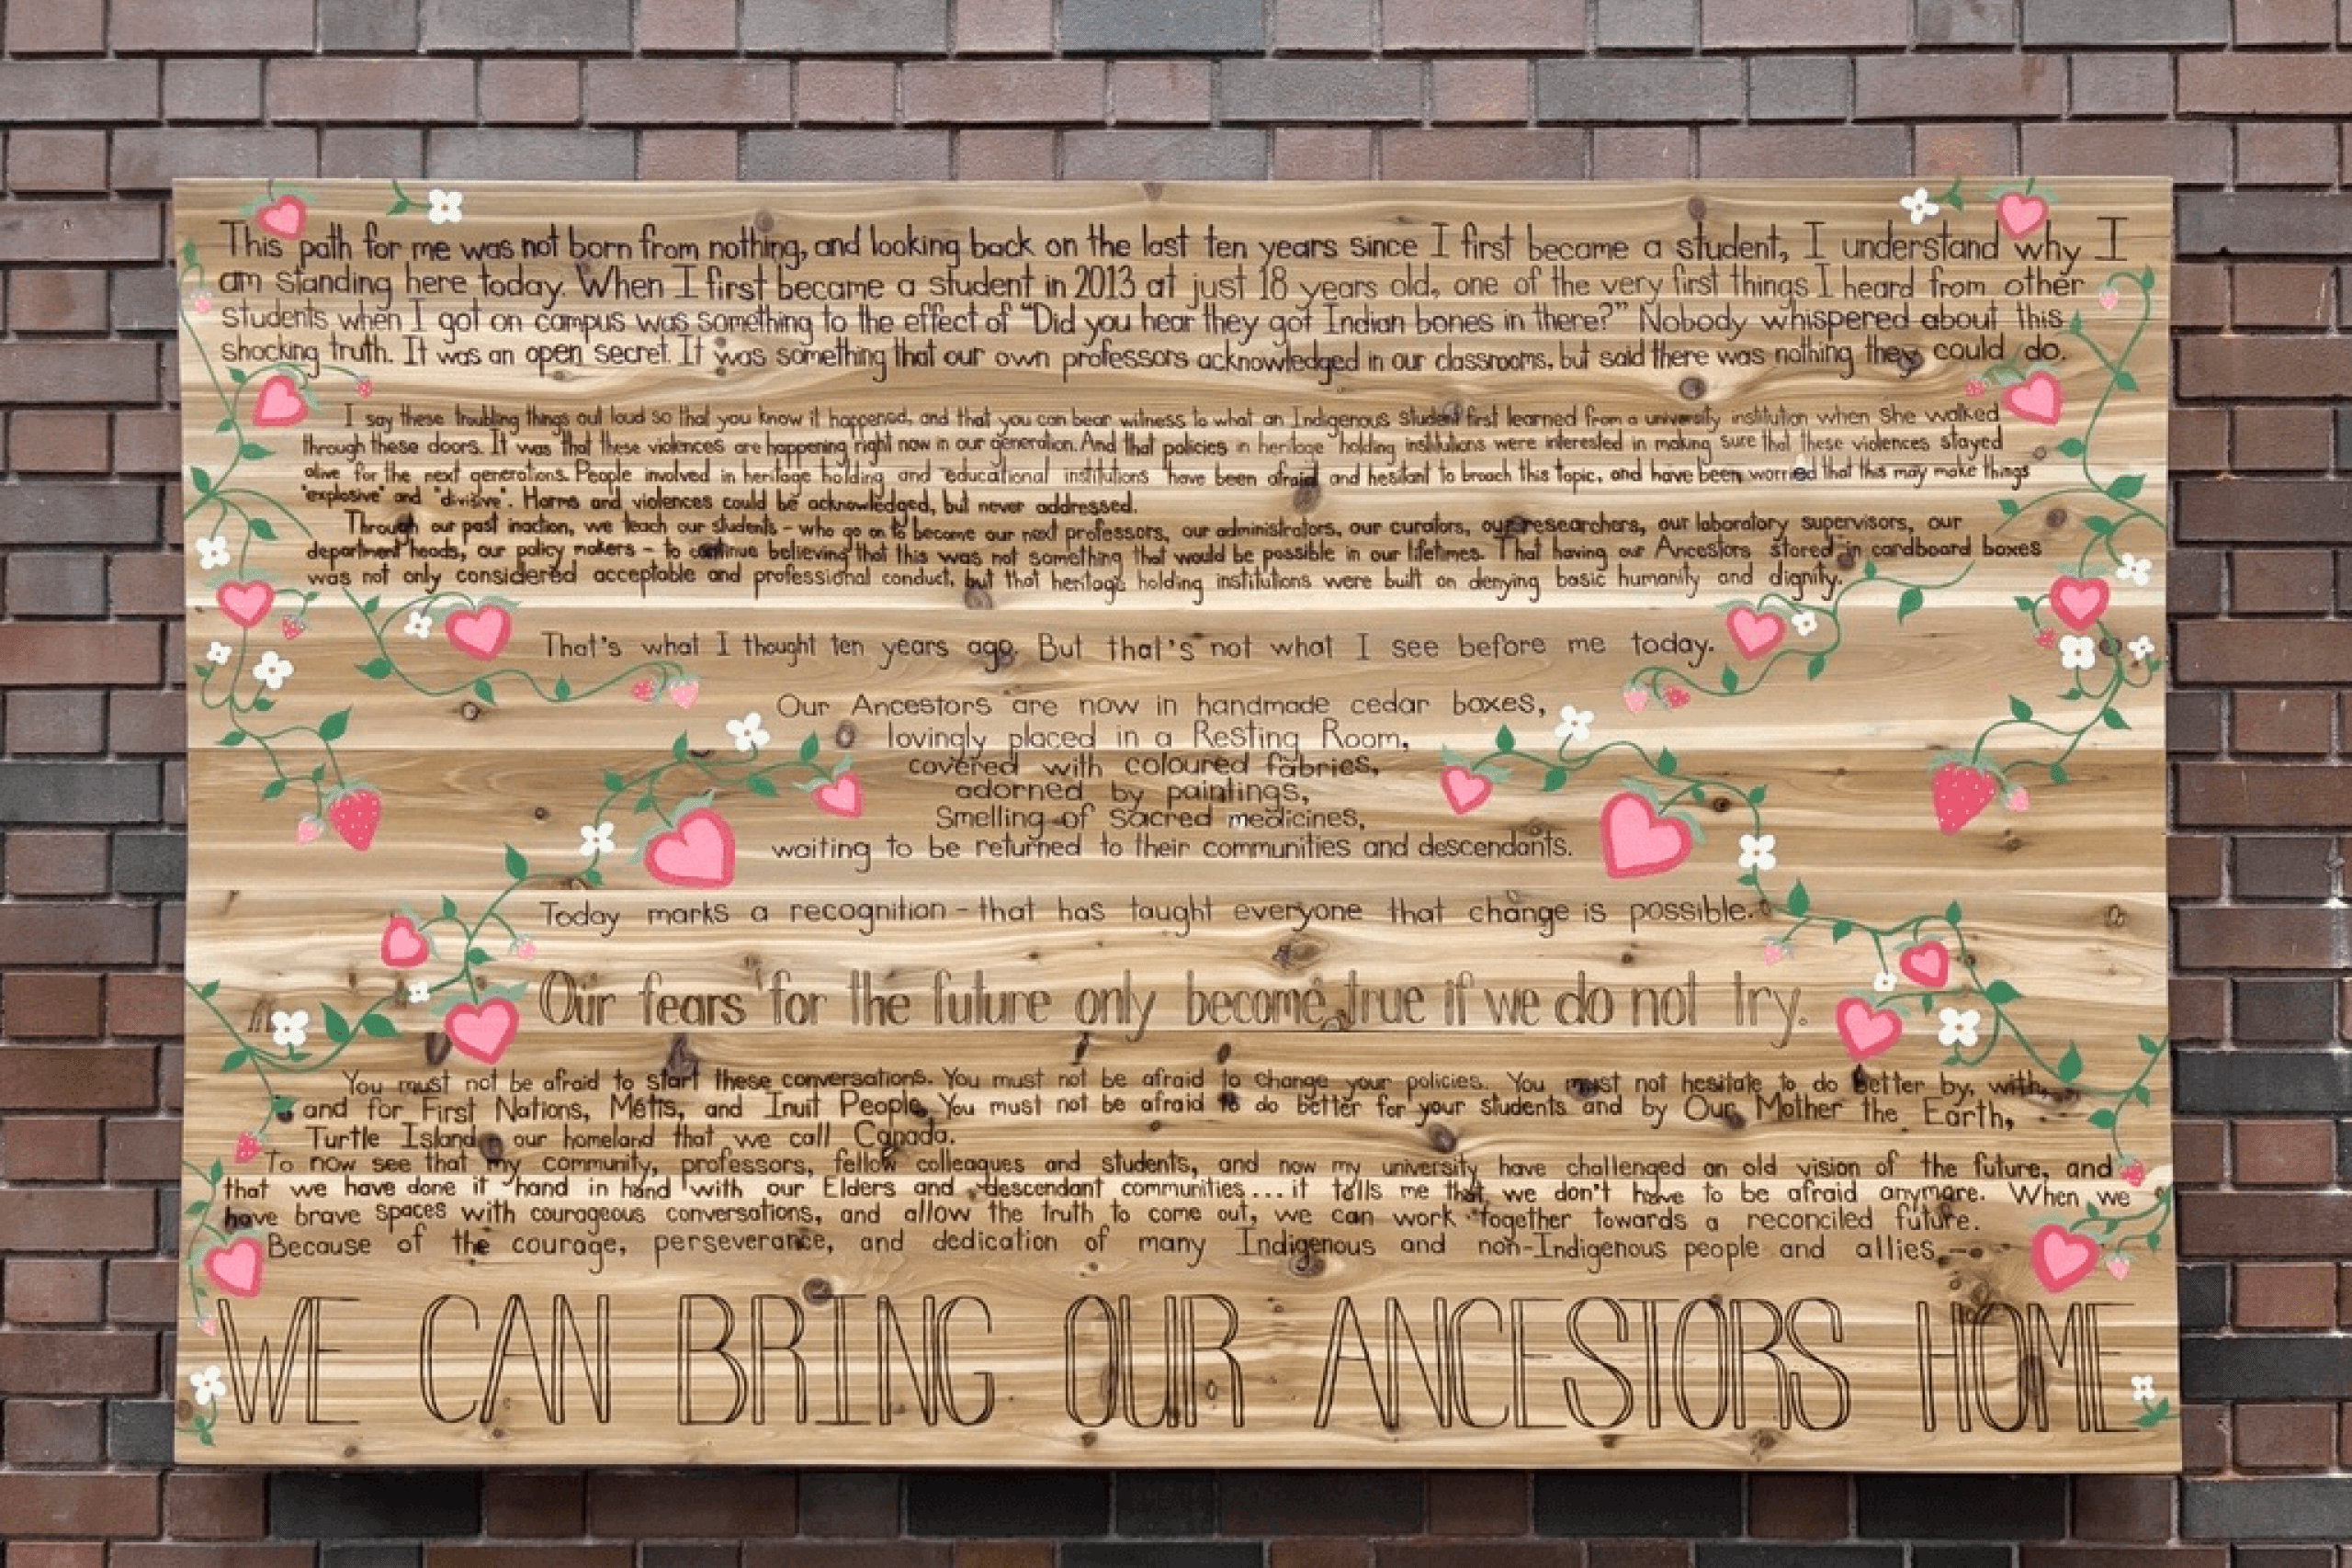 This path for me was not born from nothing, and looking back on the last ten years since I first became a student, I understand why I
am standing here today. When I first became a student in 2013 at just 18 years old, one of the very first things I heard from other
students when I got on campus was something to the effect of “Did you hear they got Indian bones in there?” Nobody whispered about this
shocking truth. It was an open secret. It was something that our own professors acknowledged in our classrooms, but said there was nothing they could do.
I say these troubling things out loud so that you know it happened, and that you can bear witness to what an Indigenous student first learned from a university institution when she walked
through these doors. It was that these violences are happening right now in our generation. And that policies in heritage holding institutions were interested in making sure that these violences stayed
alive for the next generations. People involved in heritage holding and educational institutions have been afraid and hesitant to broach this topic, and have been worried that this may make things
"explosive" and "divisive". Harms and violences could be acknowledged, but never addressed.
Through our past inaction, we teach our students - who go on to become our next professors, our administrators, our curators, our researchers, our laboratory supervisors, our
department heads, our policy makers - to continue believing that this was not something that would be possible in our lifetimes. That having our Ancestors stored in cardboard boxes
was not only considered acceptable and professional conduct, but that heritage holding institutions were built on denying basic humanity and dignity.
That's what I thought ten years ago. But that's not what I see before me today.
Our Ancestors are now in handmade cedar boxes,
lovingly placed in a Resting Room,
covered with coloured fabrics,
adorned by paintings,
Smelling of Sacred medicines,
waiting to be returned to their communities and descendants.
Today marks a recognition - that has taught everyone that change is possible.
Our fears for the future only become true if we do not try.
You must not be afraid to start these conversations. You must not be afraid to change your policies. You must not hesitate to do better by, with,
and for First Nations, Métis, and Inuit People. You must not be afraid to do better for your students and by Our Mother the Earth,
Turtle Island - our homeland that we call Canada.
To now see that my community, professors, fellow colleagues and students, and now my university have challenged an old vision of the future, and
that we have done it hand in hand with our Elders and descendant communities... it tells me that we don't have to be afraid anymore. When we
have brave spaces with courageous conversations, and allow the truth to come out, we can work together towards a reconciled future.
Because of the courage, perseverance, and dedication of many Indigenous and non-Indigenous people and allies -
WE CAN BRING OUR ANCESTORS HOME